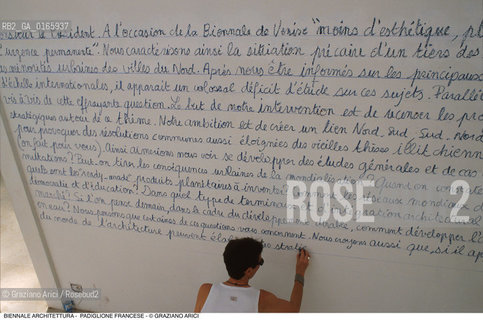 RB2 GA 0165935
l'Occident. A l'occasion de la Biennale de Venise "moins d'esthétique, pl
urgence permanente". Nous caractérisons ainsi la situation précaire d'un tiers des
minorités urbaines des villes du Nord. Après nous être informés sur les principaux
d'échelle internationales, il apparait un colossal déficit d'étude sur ces sujets. Parallè
vis à vis de cette effrayante question. Le but de notre intervention est de recenser les pro
stratégiques autour de ce thème. Notre ambition est de créer un lien Nord, Sud, Sud, Nord
pour provoquer des résolutions communes aussi éloignées des vieilles thèses
fait pour vous). Ainsi aimerions nous voir se développer des études générales et de cas
Peut-on tirer les conséquences urbaines de la
Quels sont les "ready-made" produits planétaires à
démocratie et d'éducation? Dans quel type de
marché? Si l'on pense demain, dans le cadre du comment développer
en eaux? Nous pensons que certaines de ces questions vous concernent. Nous croyons aussi que, si il
du monde de l'architecture peuvent
ROSE 2
© Graziano Arici / Rosebud2
BIENNALE ARCHITETTURA - PADIGLIONE FRANCESE - © GRAZIANO ARICI